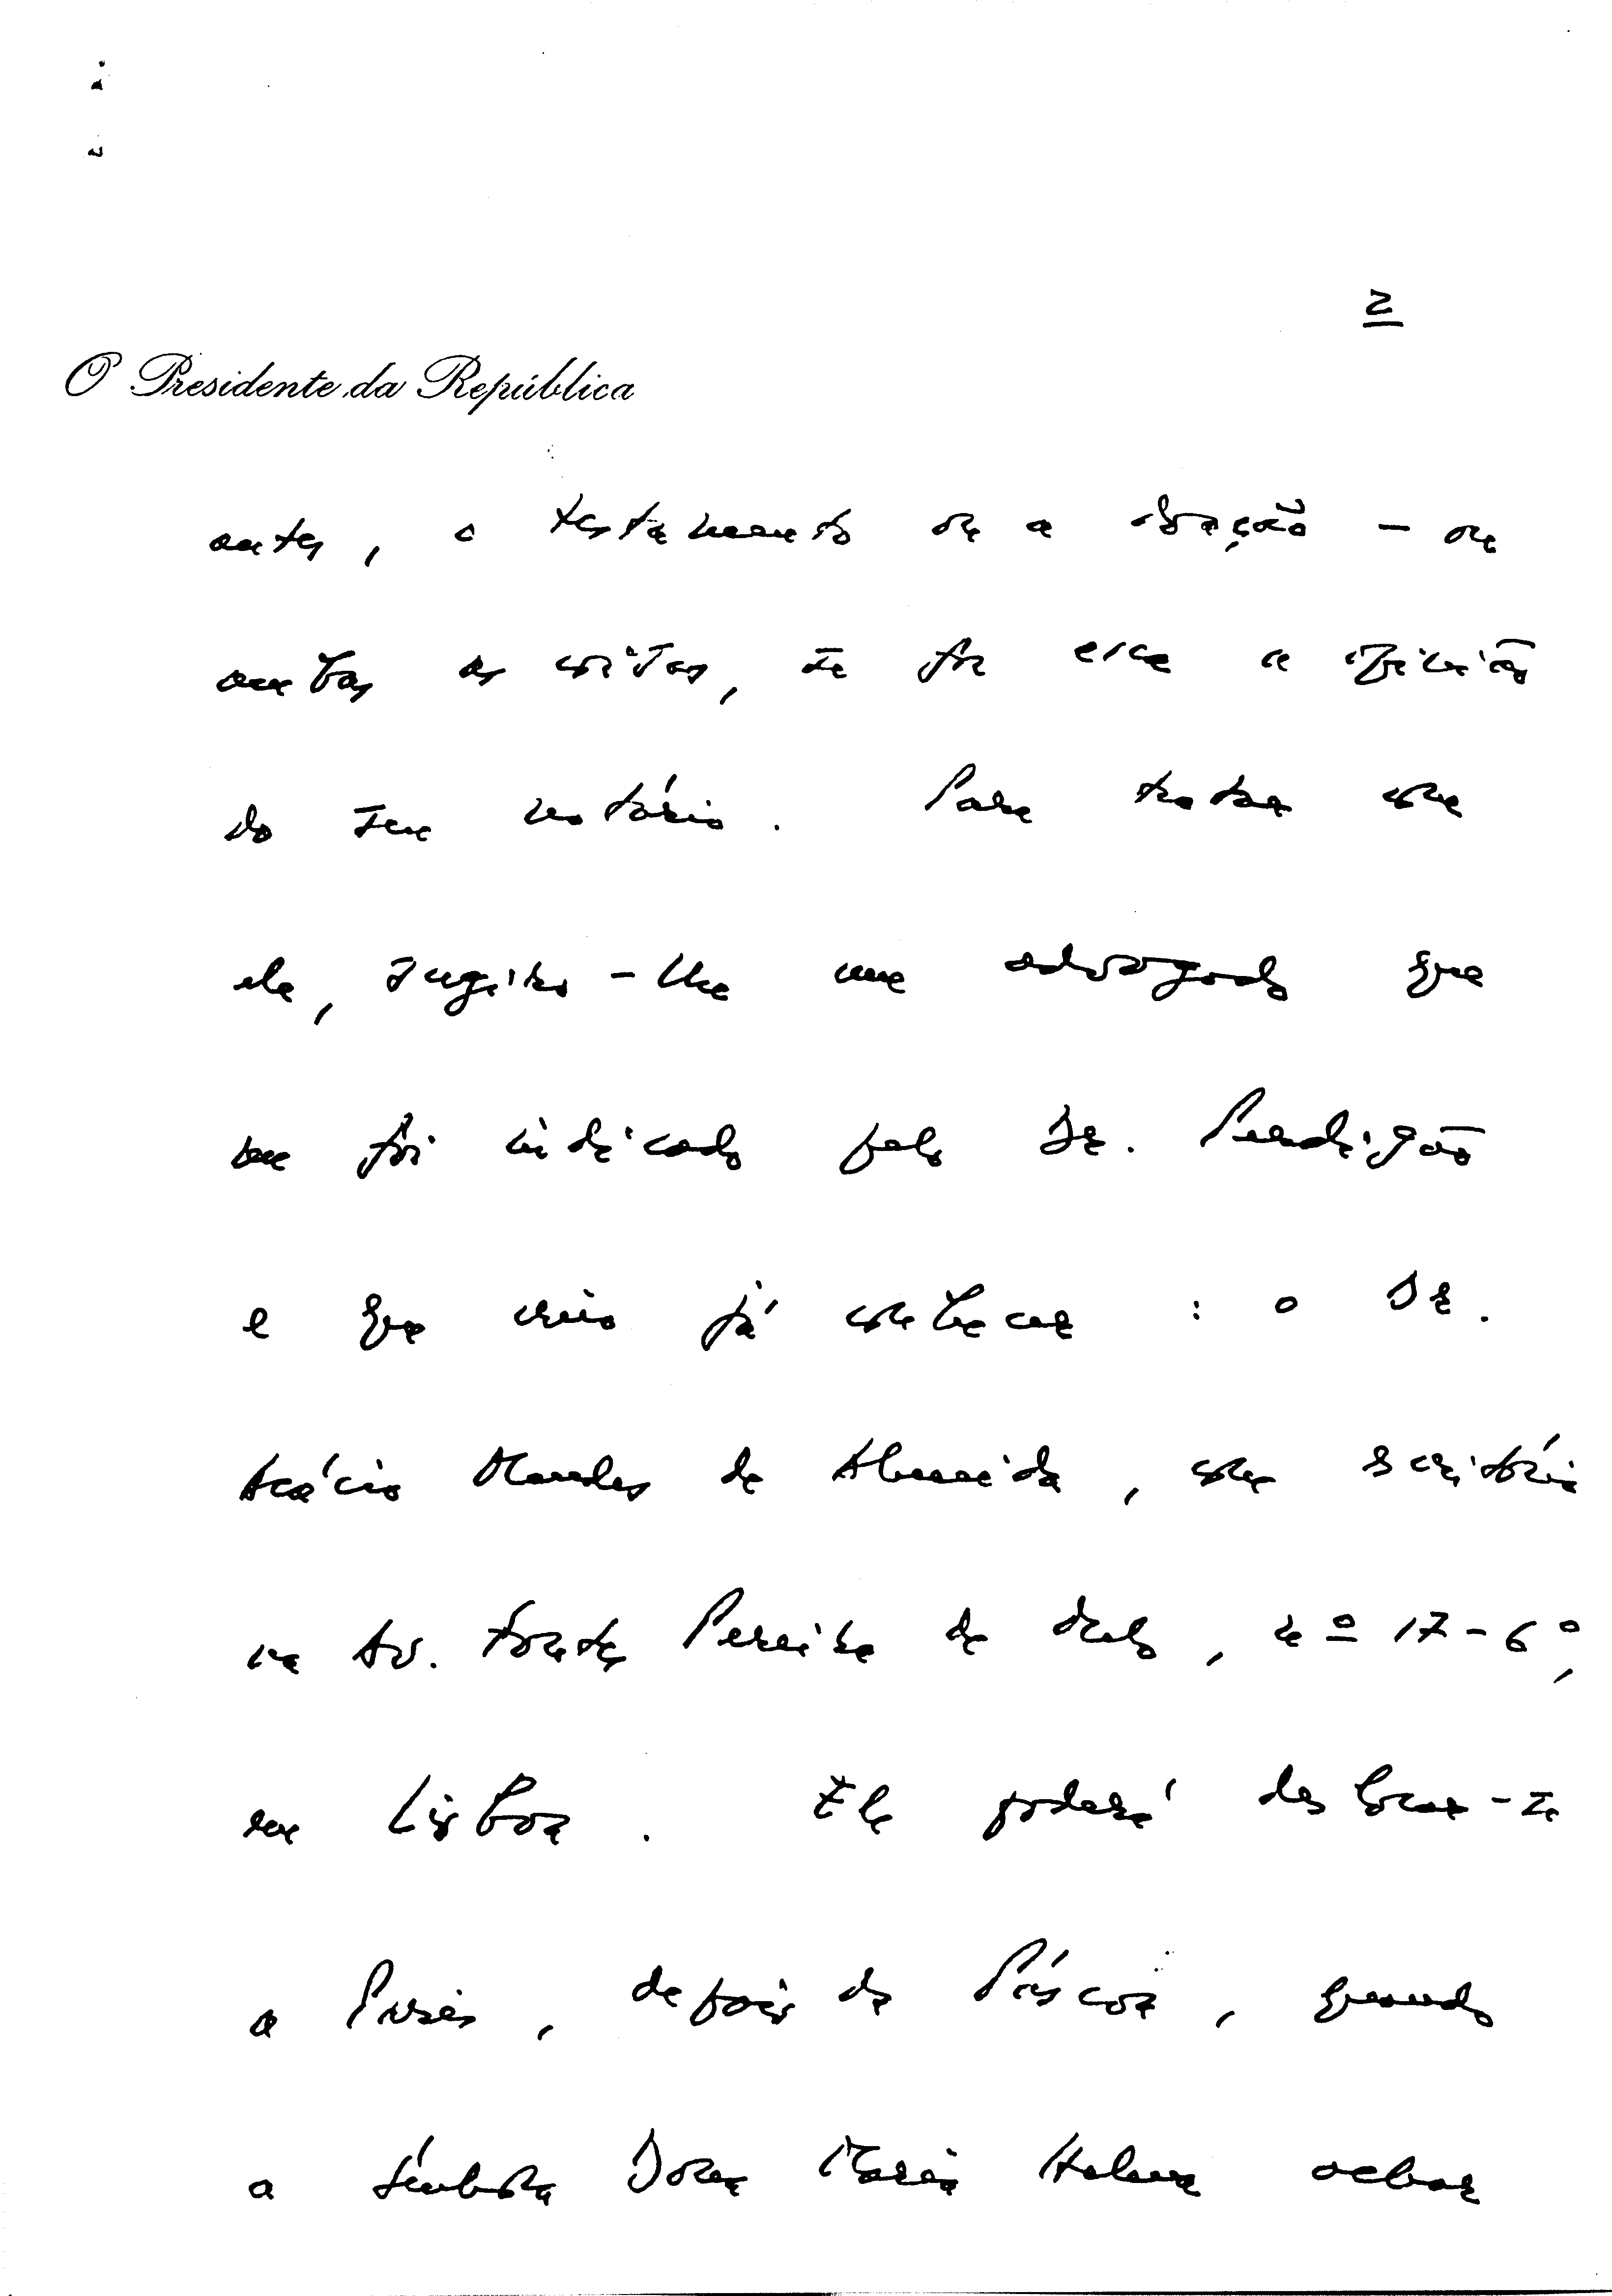 2
O Presidente da República
antes, o testamento ou a doação - ou
ambas as coisas, se for essa a opinião
do seu notário. Para tratar com
ele, sugiro-lhe um advogado que
me foi indicado pelo Dr. Perdigão
e que creio já conhecer : o Dr.
Acácio Mendes de Almeida, com escritório
na Av. Fontes Pereira de Melo, nº 17-6º,
em Lisboa. Ele poderá deslocar-se
a Paris, depois da Páscoa, quando
a Senhora Dona Maria Helena achar